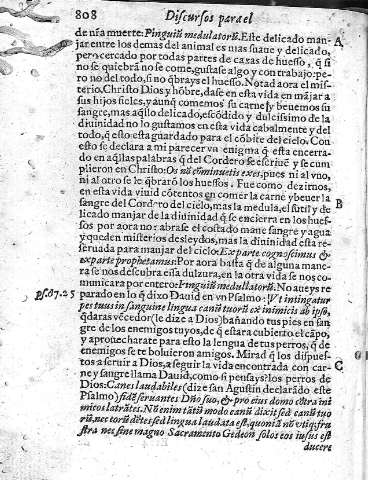 808 Discursos para el
de nr̃a muerte: Pinguiũ medulatorũ. Este delicado man-
jar entre los demas del animal es mas suaue y delicado, A
pero cercado por todas partes de caxas de huesso, q̃ si
no se quiebrã no se come, gustase algo y con trabajo: pe-
ro no del todo, si no q̃brays el huesso. Notad aora el mis-
terio, Christo Dios y hõbre, dase en esta vida en mãjar a
sus hijos fieles, y aunq̃ comemos su carne y beuemos su
sangre, mas aq̃llo delicado, escõdido y dulcissimo de la
diuinidad no lo gustamos en esta vida cabalmente y del
todo, q̃ esto esta guardado para el cõbite del cielo. Con
esto se declara a mi parecer vn enigma q̃ esta encerra-
do en aq̃llas palabras q̃ del Cordero se escriuẽ y se cum
plieron en Christo: Os nõ cõminuetis ex eo, pues ni al vno,
ni al otro se le q̃brarõ los huessos. Fue como dezirnos,
en esta vida viuid cõtentos en comer la carne y beuer la
sangre del Cordero del cielo, mas la medula, el sutil y de B
licado manjar de la diuinidad q̃ se encierra en los hues-
sos por aora no: abrase el costado mane sangre y agua
y queden misterios desleydos, mas la diuinidad esta re-
seruada para manjar del cielo: Ex parte cognoscimus &
ex parte prophetamus: Por aora basta q̃ de alguna mane-
ra se nos descubra essa dulzura, en la otra vida se nos co-
municara por entero: Pinguiũ medullatorũ. No aueys re
Ps. 67. 25 parado en lo q̃ dixo Dauid en vn Psalmo: Vt intingatur
pes tuus in sanguine lingua canũ tuorũ ex inimicis ab ipso,
q̃daras vẽcedor (se dize a Dios) bañando tus pies en san
gre de los enemigos tuyos, de q̃ estara cubierto el cãpo,
y aprouecharate para esto la lengua de tus perros, q̃ de
enemigos se te boluieron amigos. Mirad q̃ los dispues-
tos a seruir a Dios, a seguir la vida encontrada con car- C
ne y sangre llama Dauid, como si pensays? los perros de
Dios: Canes laudabiles (dize san Agustin declarãdo este
Psalmo) fidẽ seruantes Dño suo, & pro eius domo cõtra ini
micos latrãtes. Nõ enim tãtũ modo canũ dixit sed canũ tuo
rũ, nec torũ dẽtes sed lingua laudata est, quoniã nõ vtiq; fru
stra nec sine magno Sacramento Gedeon solos eos iussus est
ducere